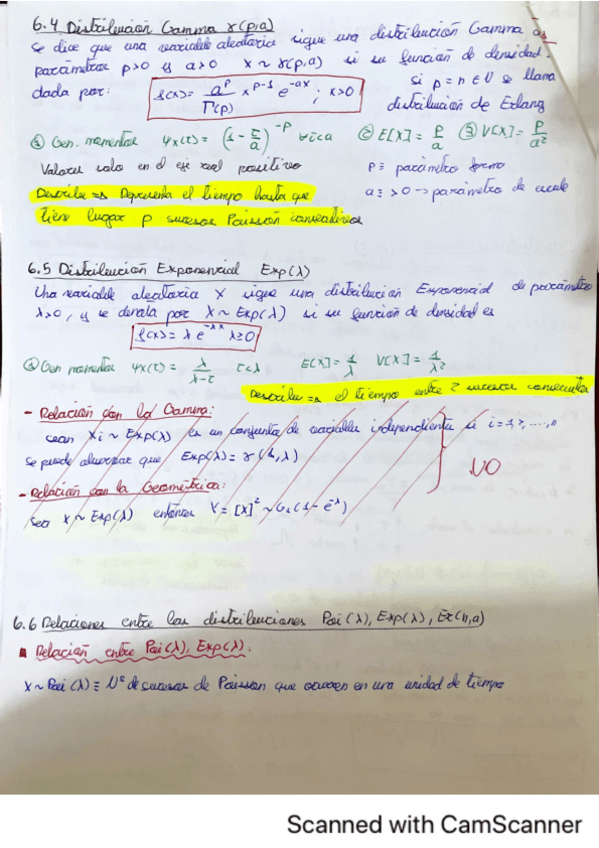 6.4 Distribución Gamma γ(p,a)
Se dice que una variable aleatoria sigue una distribución Gamma de
parámetros p>0 y a>0 X ~ γ(p,a) si su función de densidad
dada por: f(x) = a^p/Γ(p) x^(p-1) e^(-ax); x>0 si p = n ∈ N se llama
distribución de Erlang
① Gen. momentos φx(τ) = (1 - τ/a)^(-p) ∀τ<a ② E[X] = p/a ③ V[X] = p/a²
Valores solo en el eje real positivo p ≡ parámetro forma
Describe ⇒ Representa el tiempo hasta que a ≡ >0 → parámetro de escala
tiene lugar p sucesos Poisson consecutivos
6.5 Distribución Exponencial Exp(λ)
Una variable aleatoria X sigue una distribución Exponencial de parámetro
λ>0, y se denota por X ~ Exp(λ) si su función de densidad es
f(x) = λ e^(-λx) x≥0
① Gen momentos φx(τ) = λ/(λ-τ) τ<λ E[X] = 1/λ V[X] = 1/λ²
Describe ⇒ el tiempo entre 2 sucesos consecutivos
- Relación con la Gamma:
sean Xi ~ Exp(λ) es un conjunto de variables independientes si i=1,2,...,n
Se puede observar que Exp(λ) = γ(1,λ)
NO
- Relación con la Geométrica:
Sea X ~ Exp(λ) entonces Y = [X]² ~ G(1-e^(-λ))
6.6 Relaciones entre las distribuciones Poi(λ), Exp(λ), Er(n,a)
▪ Relación entre Poi(λ), Exp(λ).
X ~ Poi(λ) ≡ Nº de sucesos de Poisson que ocurren en una unidad de tiempo
Scanned with CamScanner